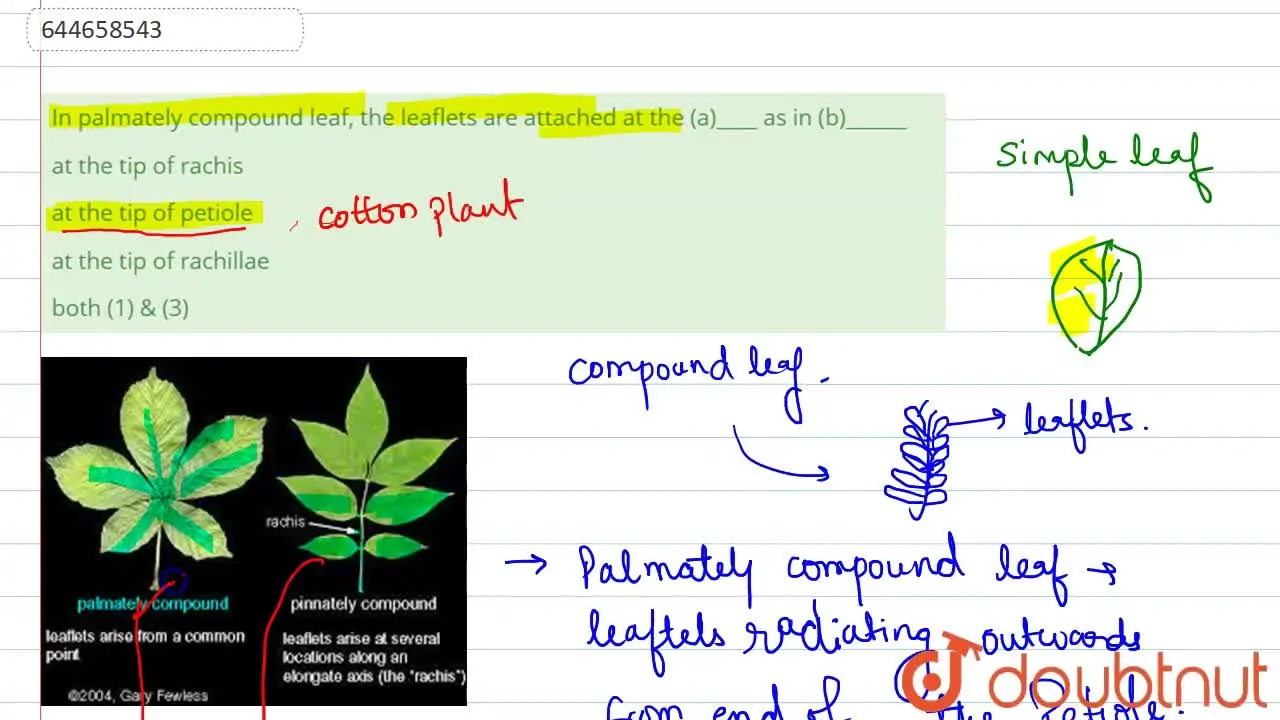 644658543
In palmately compound leaf, the leaflets are attached at the (a)____ as in (b)______
at the tip of rachis
at the tip of petiole , cotton plant
at the tip of rachillae
both (1) & (3)
simple leaf
compound leaf.
leaflets.
rachis
palmately compound
leaflets arise from a common
point
©2004, Gary Fewless
pinnately compound
leaflets arise at several
locations along an
elongate axis (the "rachis")
→ Palmately compound leaf →
leaftels radiating outwards
from end of the Petiole.
doubtnut